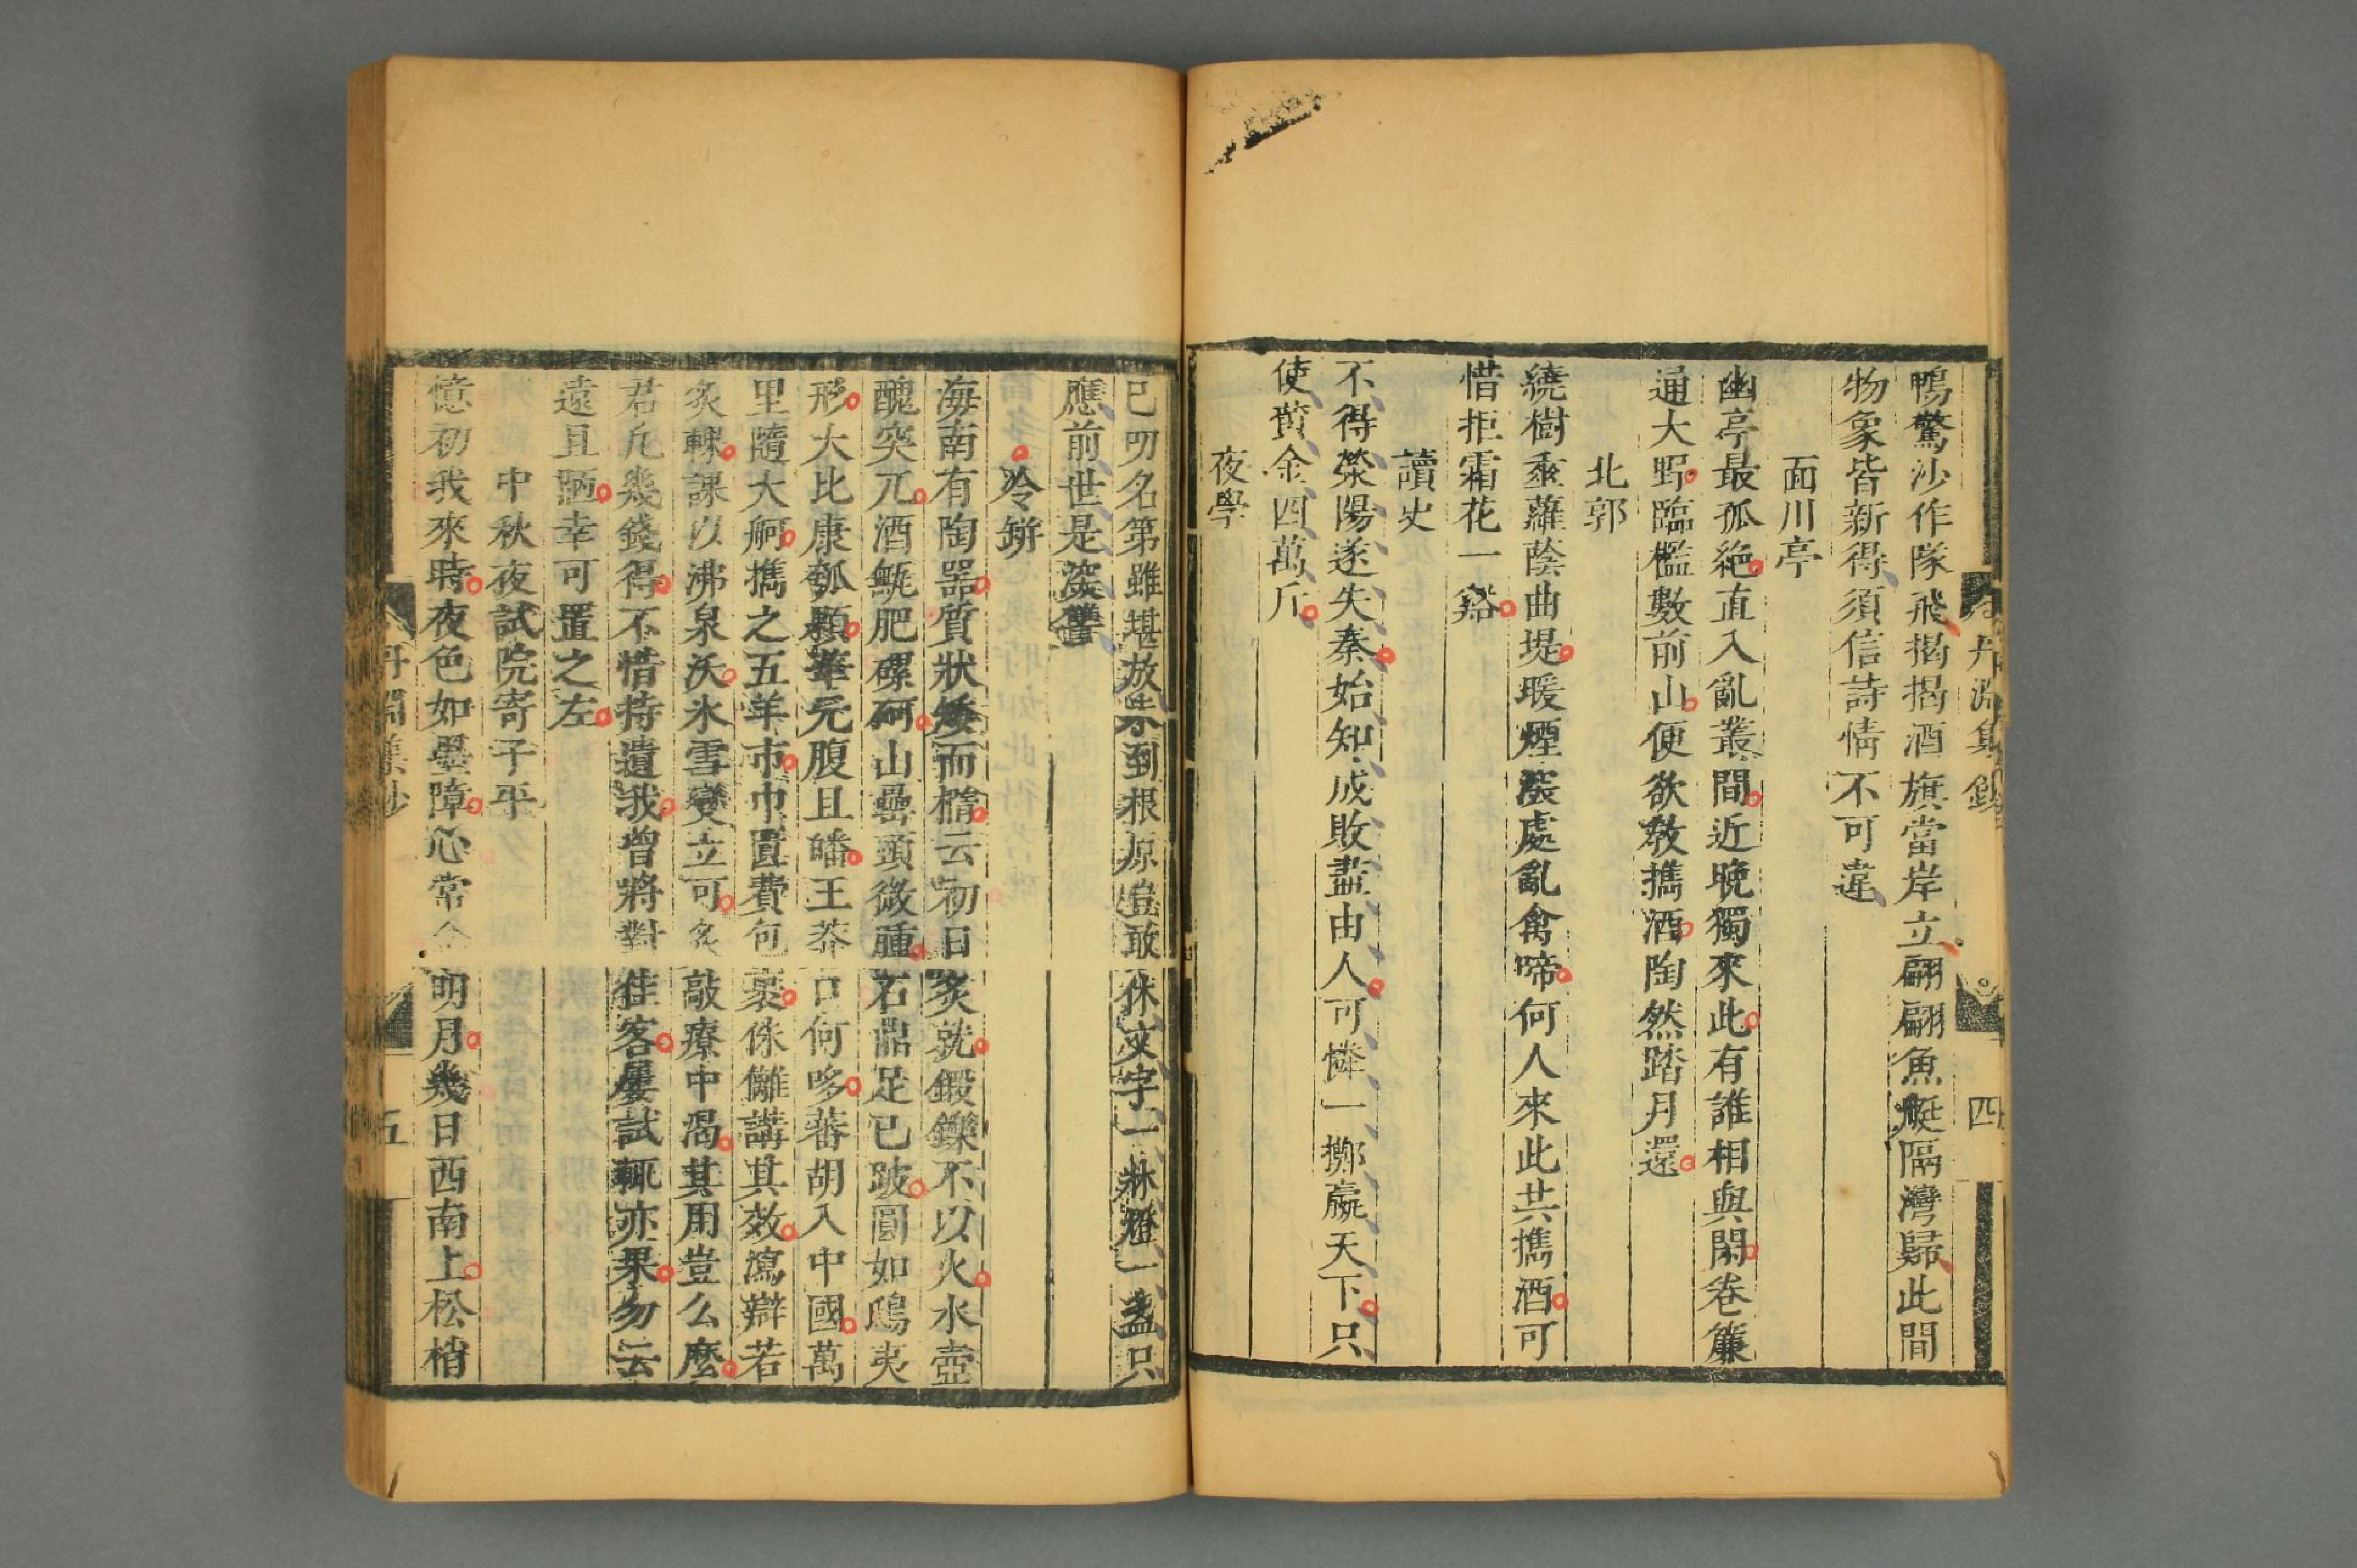 鴨驚沙作隊飛揭揭酒旗當岸立翩翩魚艇隔灣歸此間
物象皆新得須信詩情不可違
面川亭
幽亭最孤絶直入亂叢間近晚獨來此有誰相與閑卷簾
通大野臨檻數前山便欲教攜酒陶然踏月還
北郭
繞樹垂蘿蔭曲堤暖煙深處亂禽啼何人來此共攜酒可
惜拒霜花一谿
讀史
不得滎陽遂失秦始知成敗盡由人可憐一擲嬴天下只
使黃金四萬斤
夜學
丹淵集鈔
四
已叨名第雖堪放未到根原豈敢休文字一牀燈一盞只
應前世是深讐
冷缾
海南有陶器質狀矮而橢云初日炙就鍜鑠不以火水壺
醜突兀酒瓶肥磥砢山罍頭微腫石鼎足已跛圓如鴟夷
形大比康瓠顆華元腹且皤王莽口何哆蕃胡入中國萬
里隨大舸攜之五羊市巾匱費包裹侏儺講其效瀉辯若
炙輠課以沸泉沃氷雪變立可炙敲療中渴其用豈么麼
君凡幾錢得不惜持遺我曾將對佳客屢試輒亦果勿云
遠且陋幸可置之左
中秋夜試院寄子平
憶初我來時夜色如墨障心常念明月幾日西南上松梢
丹淵集鈔
五